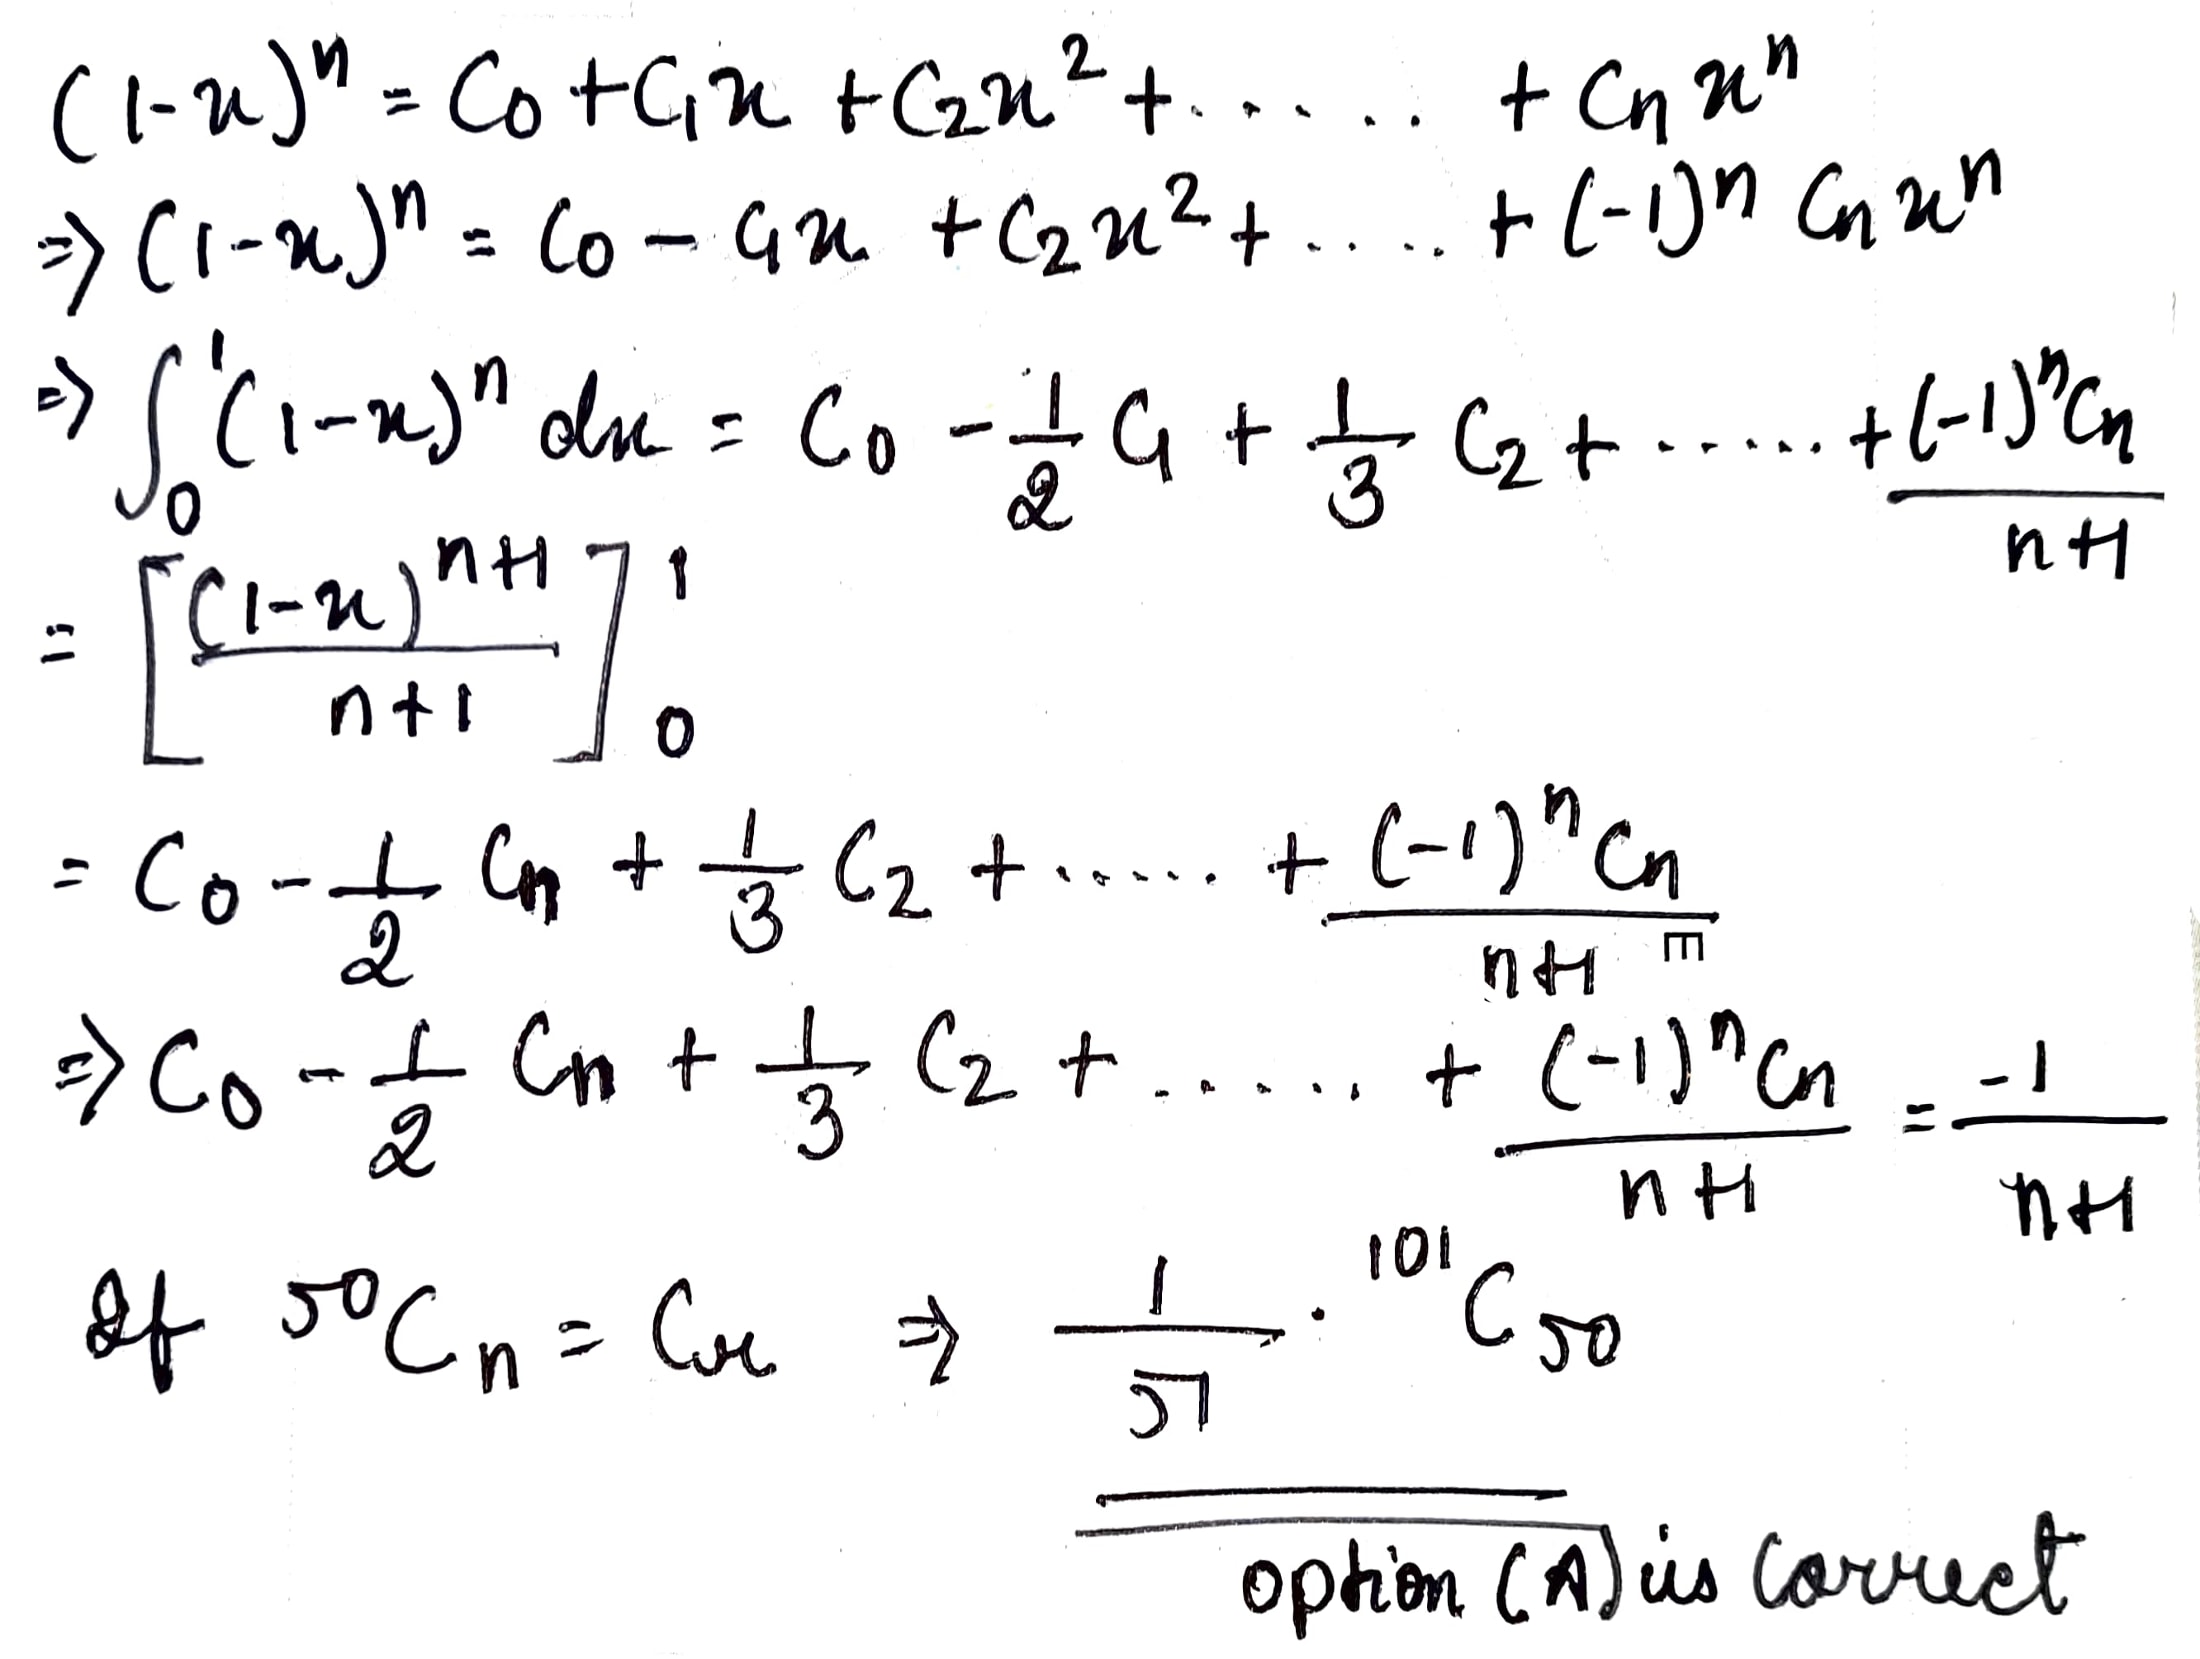 (1-x)ⁿ = C₀ + C₁x + C₂x² + ...... + Cₙxⁿ
⇒ (1-x)ⁿ = C₀ - C₁x + C₂x² + ..... + (-1)ⁿ Cₙxⁿ
⇒ ∫₀¹ (1-x)ⁿ dx = C₀ - 1/2 C₁ + 1/3 C₂ + ...... + (-1)ⁿCₙ/(n+1)
= [(1-x)ⁿ⁺¹/(n+1)]₀¹
= C₀ - 1/2 Cₙ + 1/3 C₂ + ...... + (-1)ⁿCₙ/(n+1)
⇒ C₀ - 1/2 Cₙ + 1/3 C₂ + ...... + (-1)ⁿCₙ/(n+1) = -1/(n+1)
If ⁵⁰Cₙ = Cᵣ ⇒ 1/51 · ¹⁰¹C₅₀
option (A) is correct